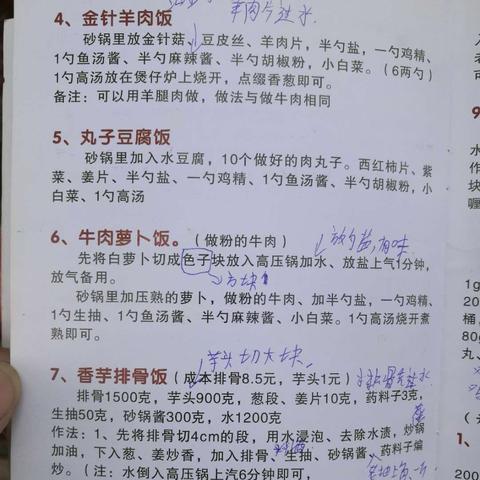 羊肉片过水
4、金针羊肉饭
砂锅里放金针菇、豆皮丝、羊肉片，半勺盐，一勺鸡精、
1勺鱼汤酱、半勺麻辣酱、半勺胡椒粉，小白菜。（6两勺）
1勺高汤放在煲仔炉上烧开，点缀香葱即可。
备注：可以用羊腿肉做，做法与做牛肉相同
5、丸子豆腐饭
砂锅里加入水豆腐，10个做好的肉丸子。西红柿片、紫
菜、姜片、半勺盐、一勺鸡精、1勺鱼汤酱、半勺胡椒粉，小
白菜、1勺高汤
6、牛肉萝卜饭。（做粉的牛肉）
放勺盐,有味
先将白萝卜切成色子块放入高压锅加水、放盐上气1分钟，
放气备用。
方块
砂锅里加压熟的萝卜，做粉的牛肉、加半勺盐，一勺鸡精、
1勺生抽、1勺鱼汤酱、半勺麻辣酱、小白菜。1勺高汤烧开煮
熟即可。
芋头切大块
7、香芋排骨饭（成本排骨8.5元，芋头1元）
排骨1500克，芋头900克，葱段、姜片10克，药料子3克，
生抽50克，砂锅酱300克，水1200克
作法：1、先将排骨切4cm的段，用水浸泡、去除水渍，炒锅
加油，下入葱、姜炒香，加入排骨、生抽、砂锅酱、药料子煸
炒。（注：水倒入高压锅上汽6分钟即可，
9
水
作
块
喱
1g
20
桶，
80g
丸、
1、
200